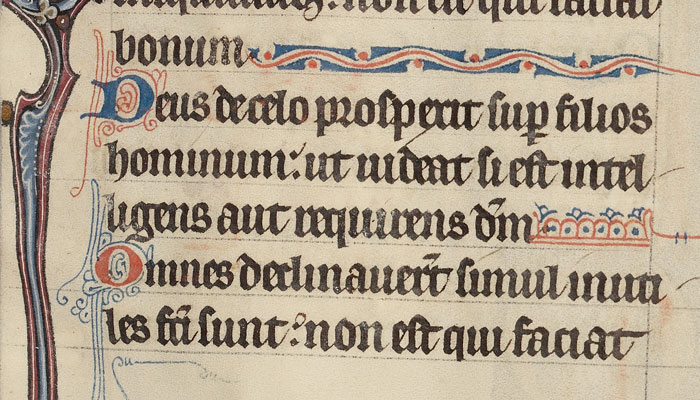 non est qui faciat
bonum
Deus de celo prospexit suꝑ filios
hominum: ut uideat si est intel
ligens aut requirens dm̄
Omnes declinauer̄t simul inuti
les fc̄i sunt: non est qui faciat